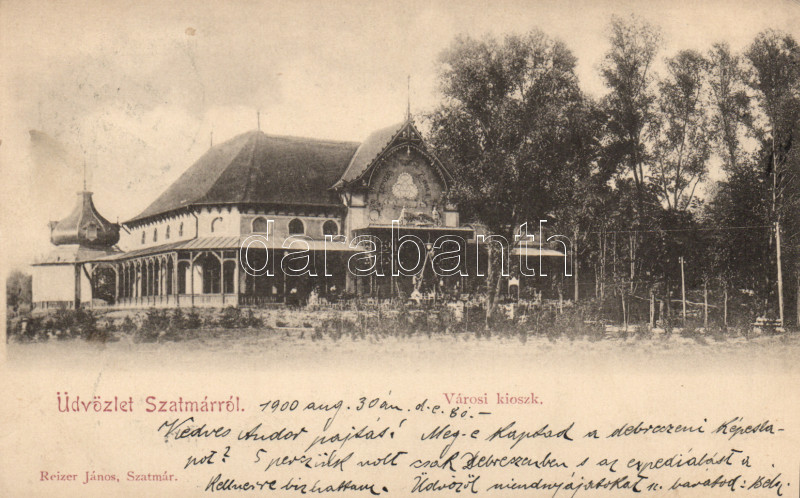 darabanth
Üdvözlet Szatmárról. 1900 aug. 30án. d.e.
Városi kioszk.
Kedves Andor pajtás! Meg-e kaptad a debreczeni képesla-
pot? 5 perczünk volt csak Debreczenben s az expediálást a
Kellnerre bizhattam. Üdvözöl mindnyájatokat barátod: Béla.
Reizer János, Szatmár.